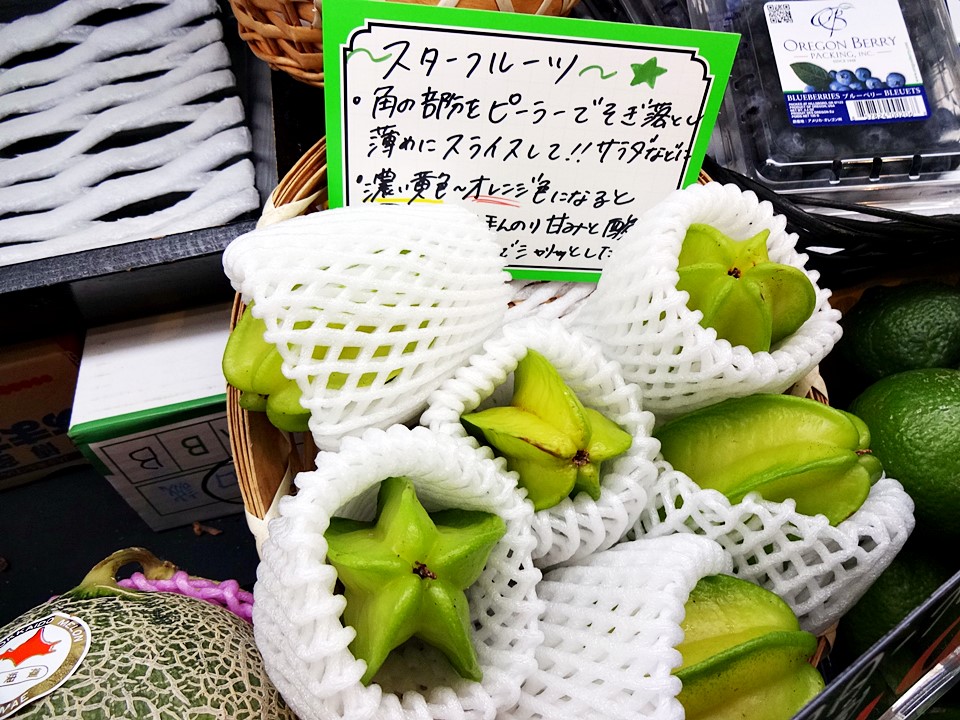 ~スターフルーツ~
・角の部分をピーラーでそぎ落とし
薄めにスライスして!!サラダなどに
・濃い黄色~オレンジ色になると
ほんのり甘みと酸
でシャリッとした
OREGON BERRY
PACKING, INC.
BLUEBERRIES ブルーベリー BLEUETS
HOKKAIDO MELON
B